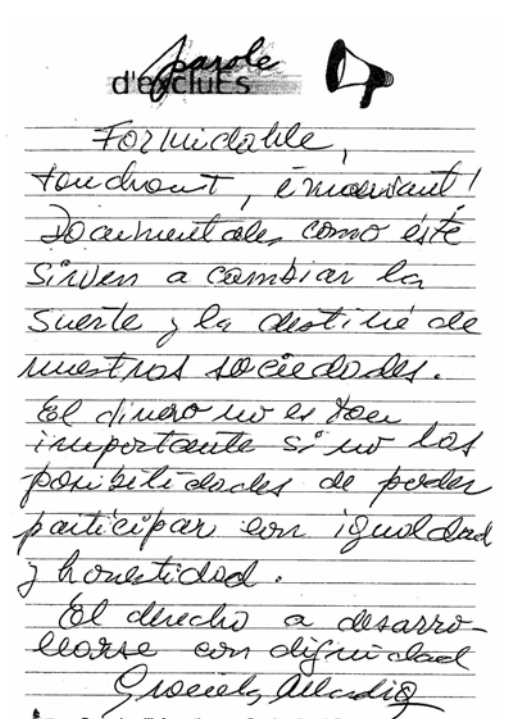 parole
d'excluEs
Formidable,
touchant, émouvant!
Documentales como éste
sirven a cambiar la
suerte y la destiné de
nuestras sociedades.
El dinero no es tan
importante si no las
posibilidades de poder
participar con igualdad
y honestidad.
El derecho a desarro-
llarse con dignidad
Graciela